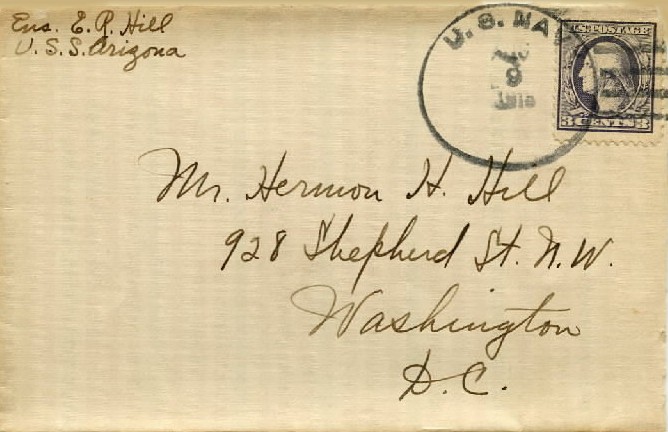 Ens. E. P. Hill
U.S.S. Arizona
U.S. NA
9
U.S. POSTAGE
3 CENTS 3
Mr. Hermon H. Hill
928 Shepherd St. N.W.
Washington
D.C.